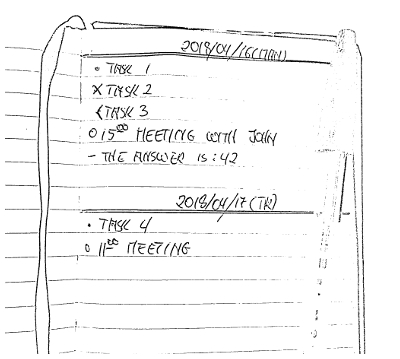 2018/04/16(MAN)
• TASK 1
× TASK 2
< TASK 3
O 15⁰⁰ MEETING WITH JOHN
- THE ANSWER IS: 42
2018/04/17(TIR)
• TASK 4
O 11⁰⁰ MEETING